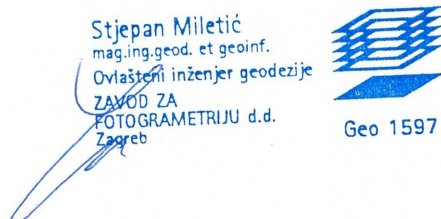 Stjepan Miletić
mag.ing.geod. et geoinf.
Ovlašteni inženjer geodezije
ZAVOD ZA
FOTOGRAMETRIJU d.d.
Zagreb
Geo 1597